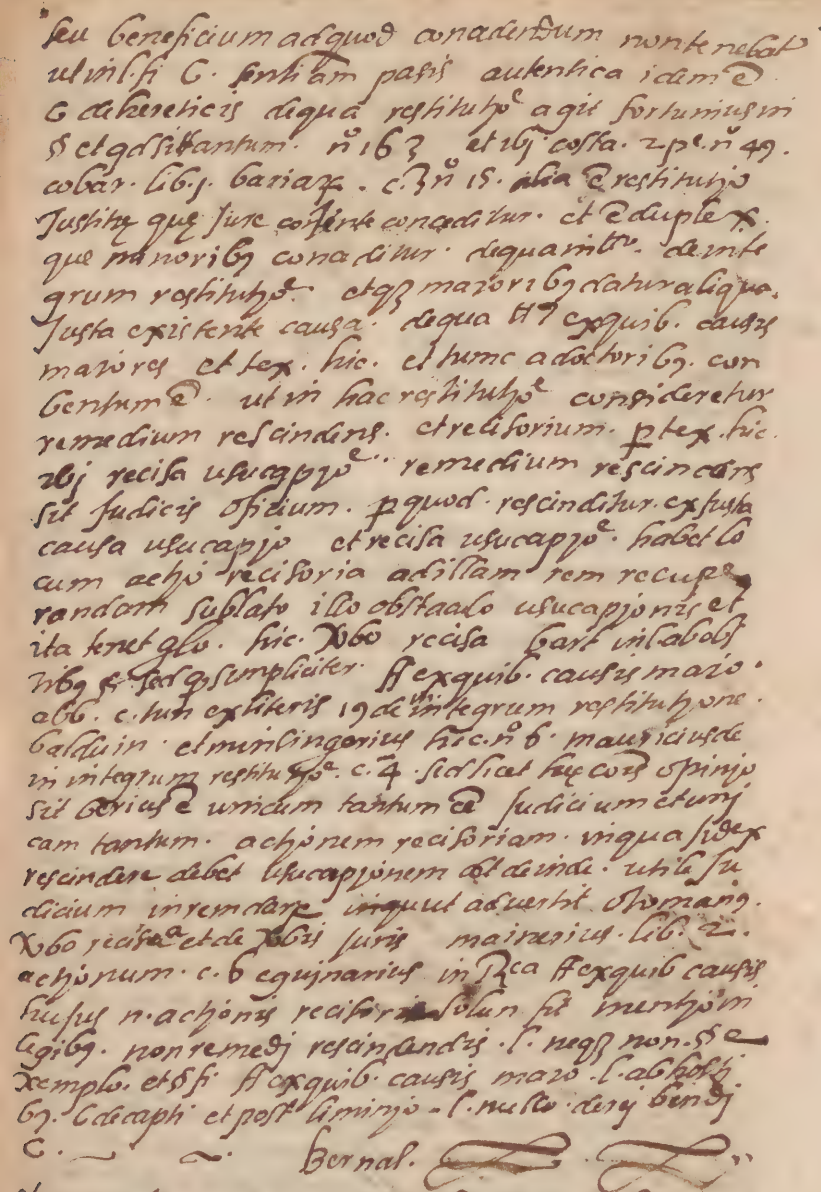 seu beneficium ad quod concedendum non tenebat^r
ut in l. fi C. sentiam pasis autentica idem ē
C de hereticis de qua restitutjo^e agit fortunius in
§ et qd si tantum. n^o 163 et ibj costa. 2 p^e. n^o 49.
cobar. lib. j. bariaꝝ. c. 3 n^o 15. alia ē restitutjo
Justitię quę Jure conced itur. et ē duplex.
que minoribꝰ conceditur. de qua in tt^o. de inte
grum restitutjo^e. et qȝ maioribꝰ datur aliqua.
Justa existente causa. de qua ff ex quib. causis
maiores et tex. hic. et tunc a doctoribꝰ. con
bentum ē. ut in hac restitutjo^e consideretur
remedium rescindens. et recisorium. ꝑ tex. hic.
ibj recisa usucapjo^e. remedium rescindens
sit Judicis oficium. ꝑ quod. rescinditur. ex Justa
causa usucapjo et recisa usucapjo^e. habet lo
cum actjo recisoria ad illam rem recupe
randam sublato illo obstaculo usucapjonis et
ita tenet glo. hic. Xbo recisa bart in
ribꝰ § sed qd simpliciter. ff ex quib. causis maio.
abb. c. tun ex literis 19 de in integrum restitutjone.
balduin. et minsingerius hic. n^o 6. mauricius de
in integrum restitutjo^e. c. 4. sed licet hęc cois opinjo
sit berius ē unicum tantum eē Judicium et unj
cam tantum. actjonem recisoriam. in qua Judex
rescindere debet usucapjonem deinde. utile Ju
dicium in rem dare ut advertit otomanꝰ.
Xbo recisa et de Xbis Juris lib. 2.
actjonum. c. 6 equinarius in ff ex quib causis
hujus n. actjonis recisorię solum fit mentjo in
legibꝰ. non remedj rescindendis. l. neqȝ non. § e
xemplo. et § fi ff ex quib. causis maio. l. ab hostj
bꝰ. C de capti et post liminjo. l. nullo. de rej bendj
C.
Bernal.